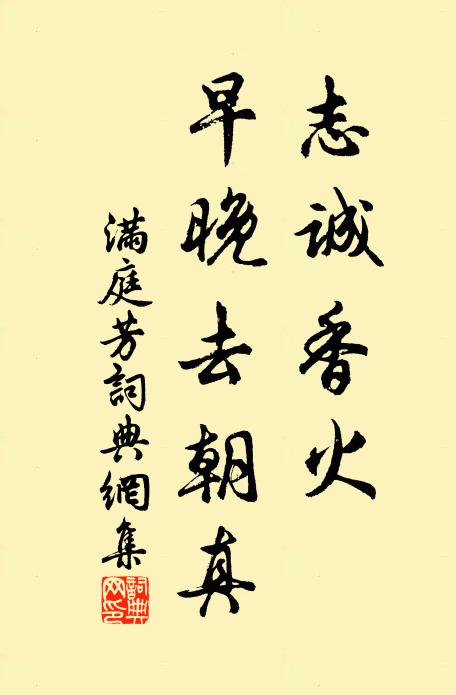 志誠香火
早晚去朝真
滿庭芳詞典網集
詞典网印